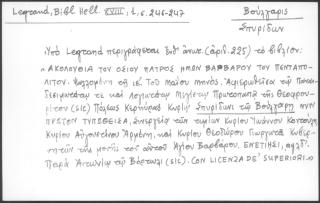 Legrand, Bibl. Hell. XVIII, 1, σ. 246-247
Βούλγαρις
Σπυρίδων
Ὑπὸ Legrand περιγράφεται ἔνθ' ἀνωτ. (ἀριθ. 225) τὸ βιβλίον:
"ΑΚΟΛΟΥΘΙΑ ΤΟΥ ΟΣΙΟΥ ΠΑΤΡΟΣ ΗΜΩΝ ΒΑΡΒΑΡΟΥ ΤΟΥ ΠΕΝΤΑΠΟ-
ΛΙΤΟΥ. Ψαλλομένη τῇ ιε΄ τοῦ Μαΐου μηνός. Ἀφιερωθεῖσα τῷ Πανοσι-
ολογιωτάτῳ Μεγάλῳ Πρωτοπαπᾷ τῆς Θεοφρου-
ρίτου (sic) Πόλεως Κερκύρας Κυρίῳ Σπυρίδωνι τῷ Βούλγαρη ΝΥΝ
ΠΡΩΤΟΝ ΤΥΠΩΘΕΙΣΑ, συνεργείᾳ τῶν τιμίων Κυρίου Ἰωάννου
Κυρίου Αὐγουστίνου καὶ Κυρίου Θεοδώρου Γιωργάτα Κυβερ-
νητῶν τῆς μονῆς τοῦ αὐτοῦ Ἁγίου Βαρβάρου. ΕΝΕΤΙΗΣΙ,
Παρὰ Ἀντωνίῳ τῷ Βόρτολι (sic). CON LICENZA DE' SUPERIORI."